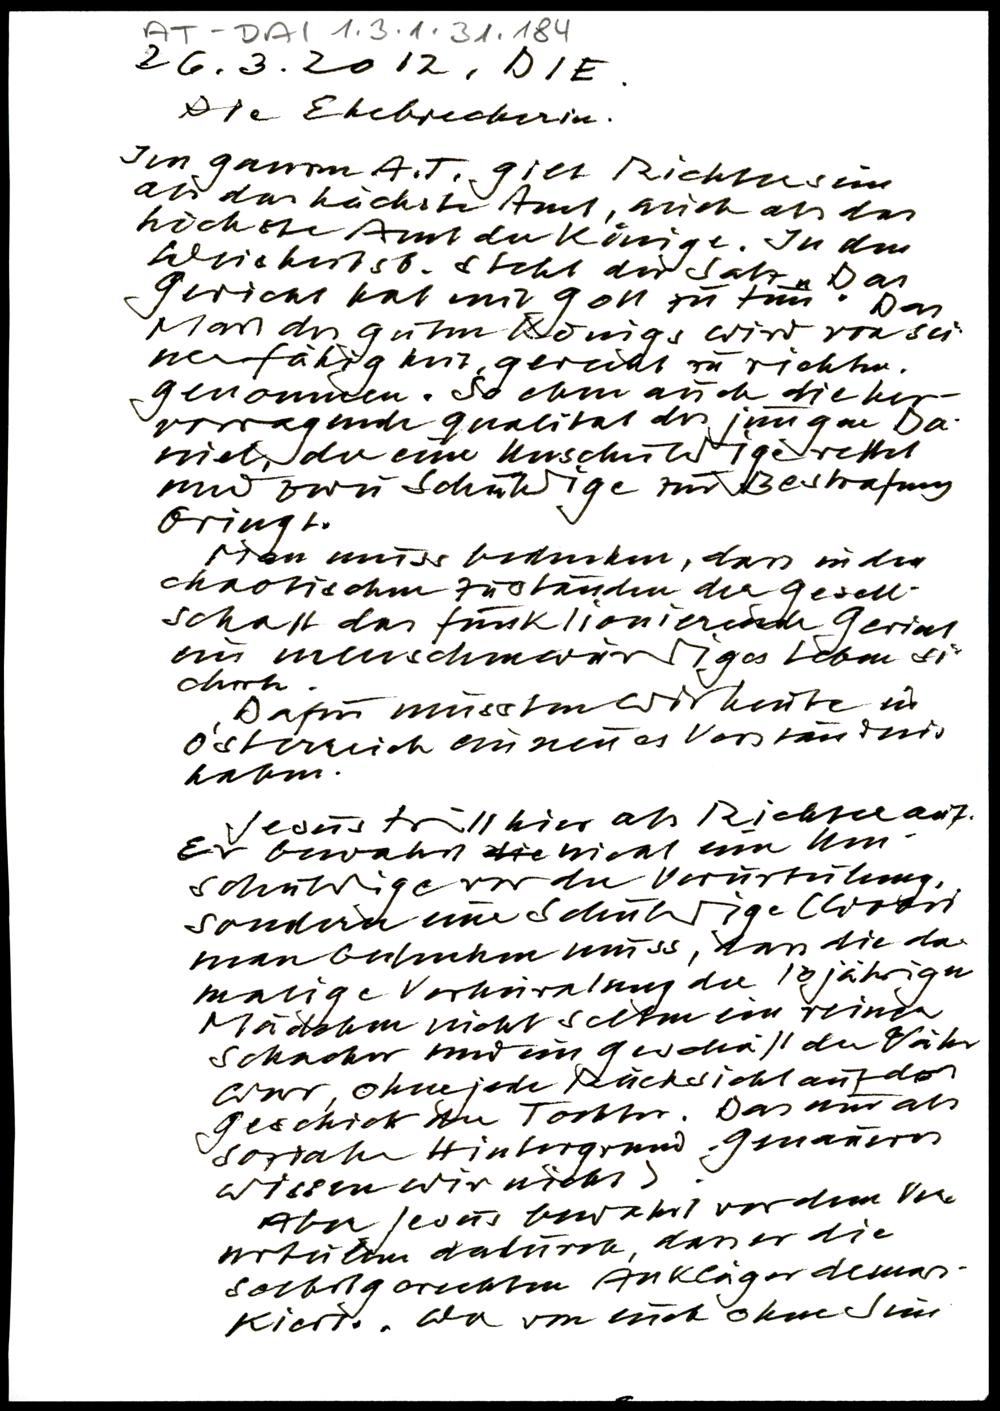 AT-DAI 1.3.1.31.184
26.3.2012, DIE.
Die Ehebrecherin.
Im ganzen A.T. gilt Richter sein
als das höchste Amt, auch als das
höchste Amt der Könige. In den
Weisheitsb. steht der Satz „Das
Gericht hat mit Gott zu tun". Das
Mass des guten Königs wird von sei
ner Fähigkeit, gerecht zu richten.
genommen. So eben auch die her-
vorragende Qualität des jungen Da-
niel, der eine Unschuldige rettet
und zwei Schuldige zur Bestrafung
bringt.
Man muss bedenken, dass in den
chaotischen Zuständen der Gesell-
schaft das funktionierende Gericht
ein menschenwürdiges Leben si-
chert.
Dafür müssten wir heute in
Österreich ein neues Verständnis
haben.
Jesus tritt hier als Richter auf.
Er bewahrt die nicht eine Un-
schuldige vor der Verurteilung,
sondern eine Schuldige (wobei
man bedenken muss, dass die da-
malige Verheiratung der 13jährigen
Mädchen nicht selten ein reiner
Schacher und ein Geschäft der Väter
war, ohne jede Rücksicht auf das
Geschick der Tochter. Das nur als
sozialer Hintergrund. Genaueres
wissen wir nicht).
Aber Jesus bewahrt vor dem Ver-
urteilen dadurch, dass er die
selbstgerechten Ankläger demas-
kiert. Wer von euch ohne Sünde